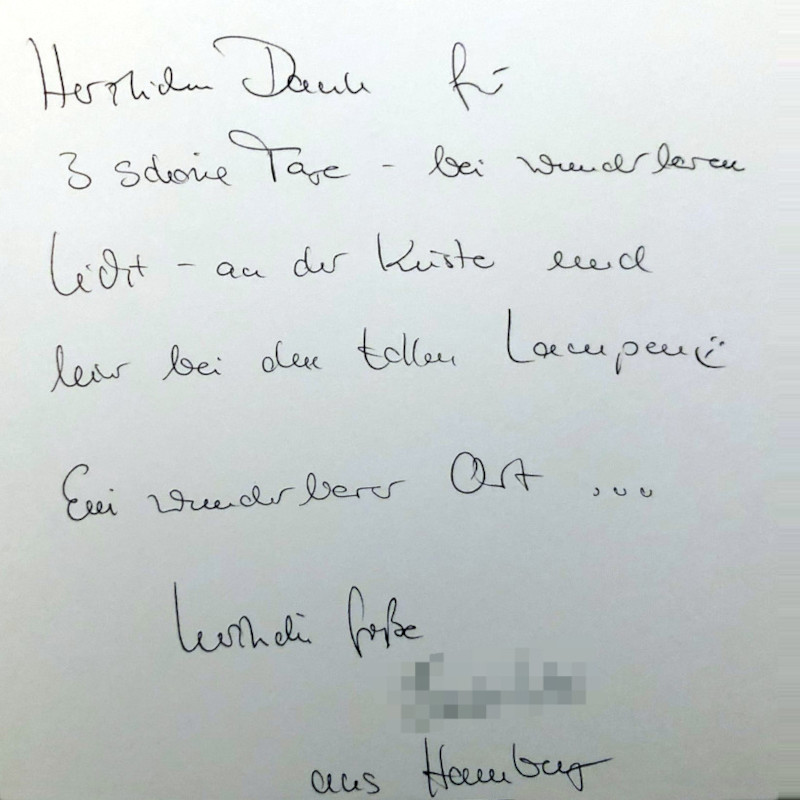 Herzlichen Dank für
3 schöne Tage - bei wunderbaren
Licht - an der Küste und
hier bei den tollen Lampen :)
Ein wunderbarer Ort ...
herzliche Grüße
aus Hamburg